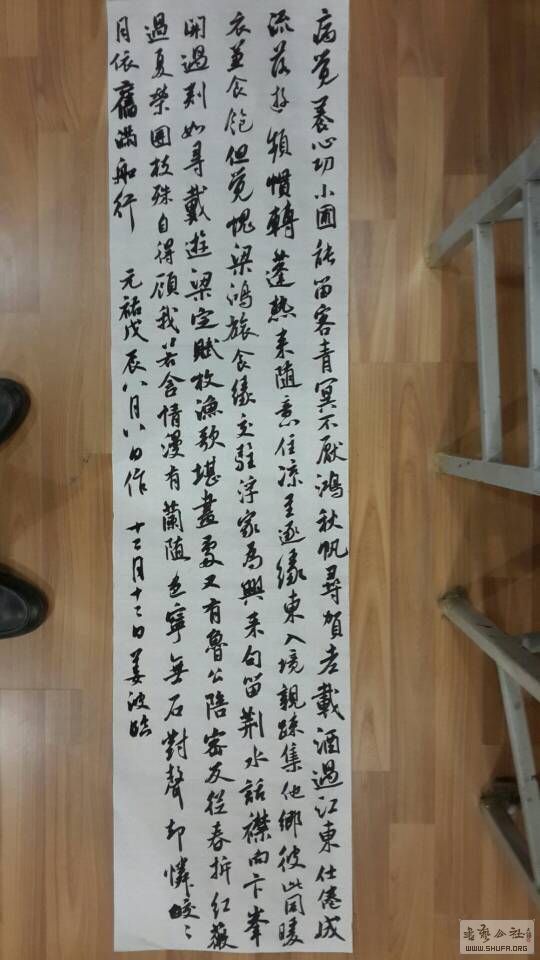 病覺養心功小圃能留客青冥不厭鴻秋帆尋賀老載酒過江東仕倦成
流落遊頻慣轉蓬熱來隨意住涼至逐緣東入境親疎集他鄉彼此同暖
衣兼食飽但覺愧梁鴻旅食緣交駐浮家為興來句留荆水話襟向卞峯
開過剡如尋戴遊梁定賦枚漁歌堪畫處又有魯公陪密友從春拆紅薇
過夏榮團枝殊自得顧我若含情漫有蘭隨色寧無石對聲却憐皎皎
月依舊滿舡行 元祐戊辰八月八日作 十二月十二日姜波臨
書藝公社
WWW.SHUFA.ORG